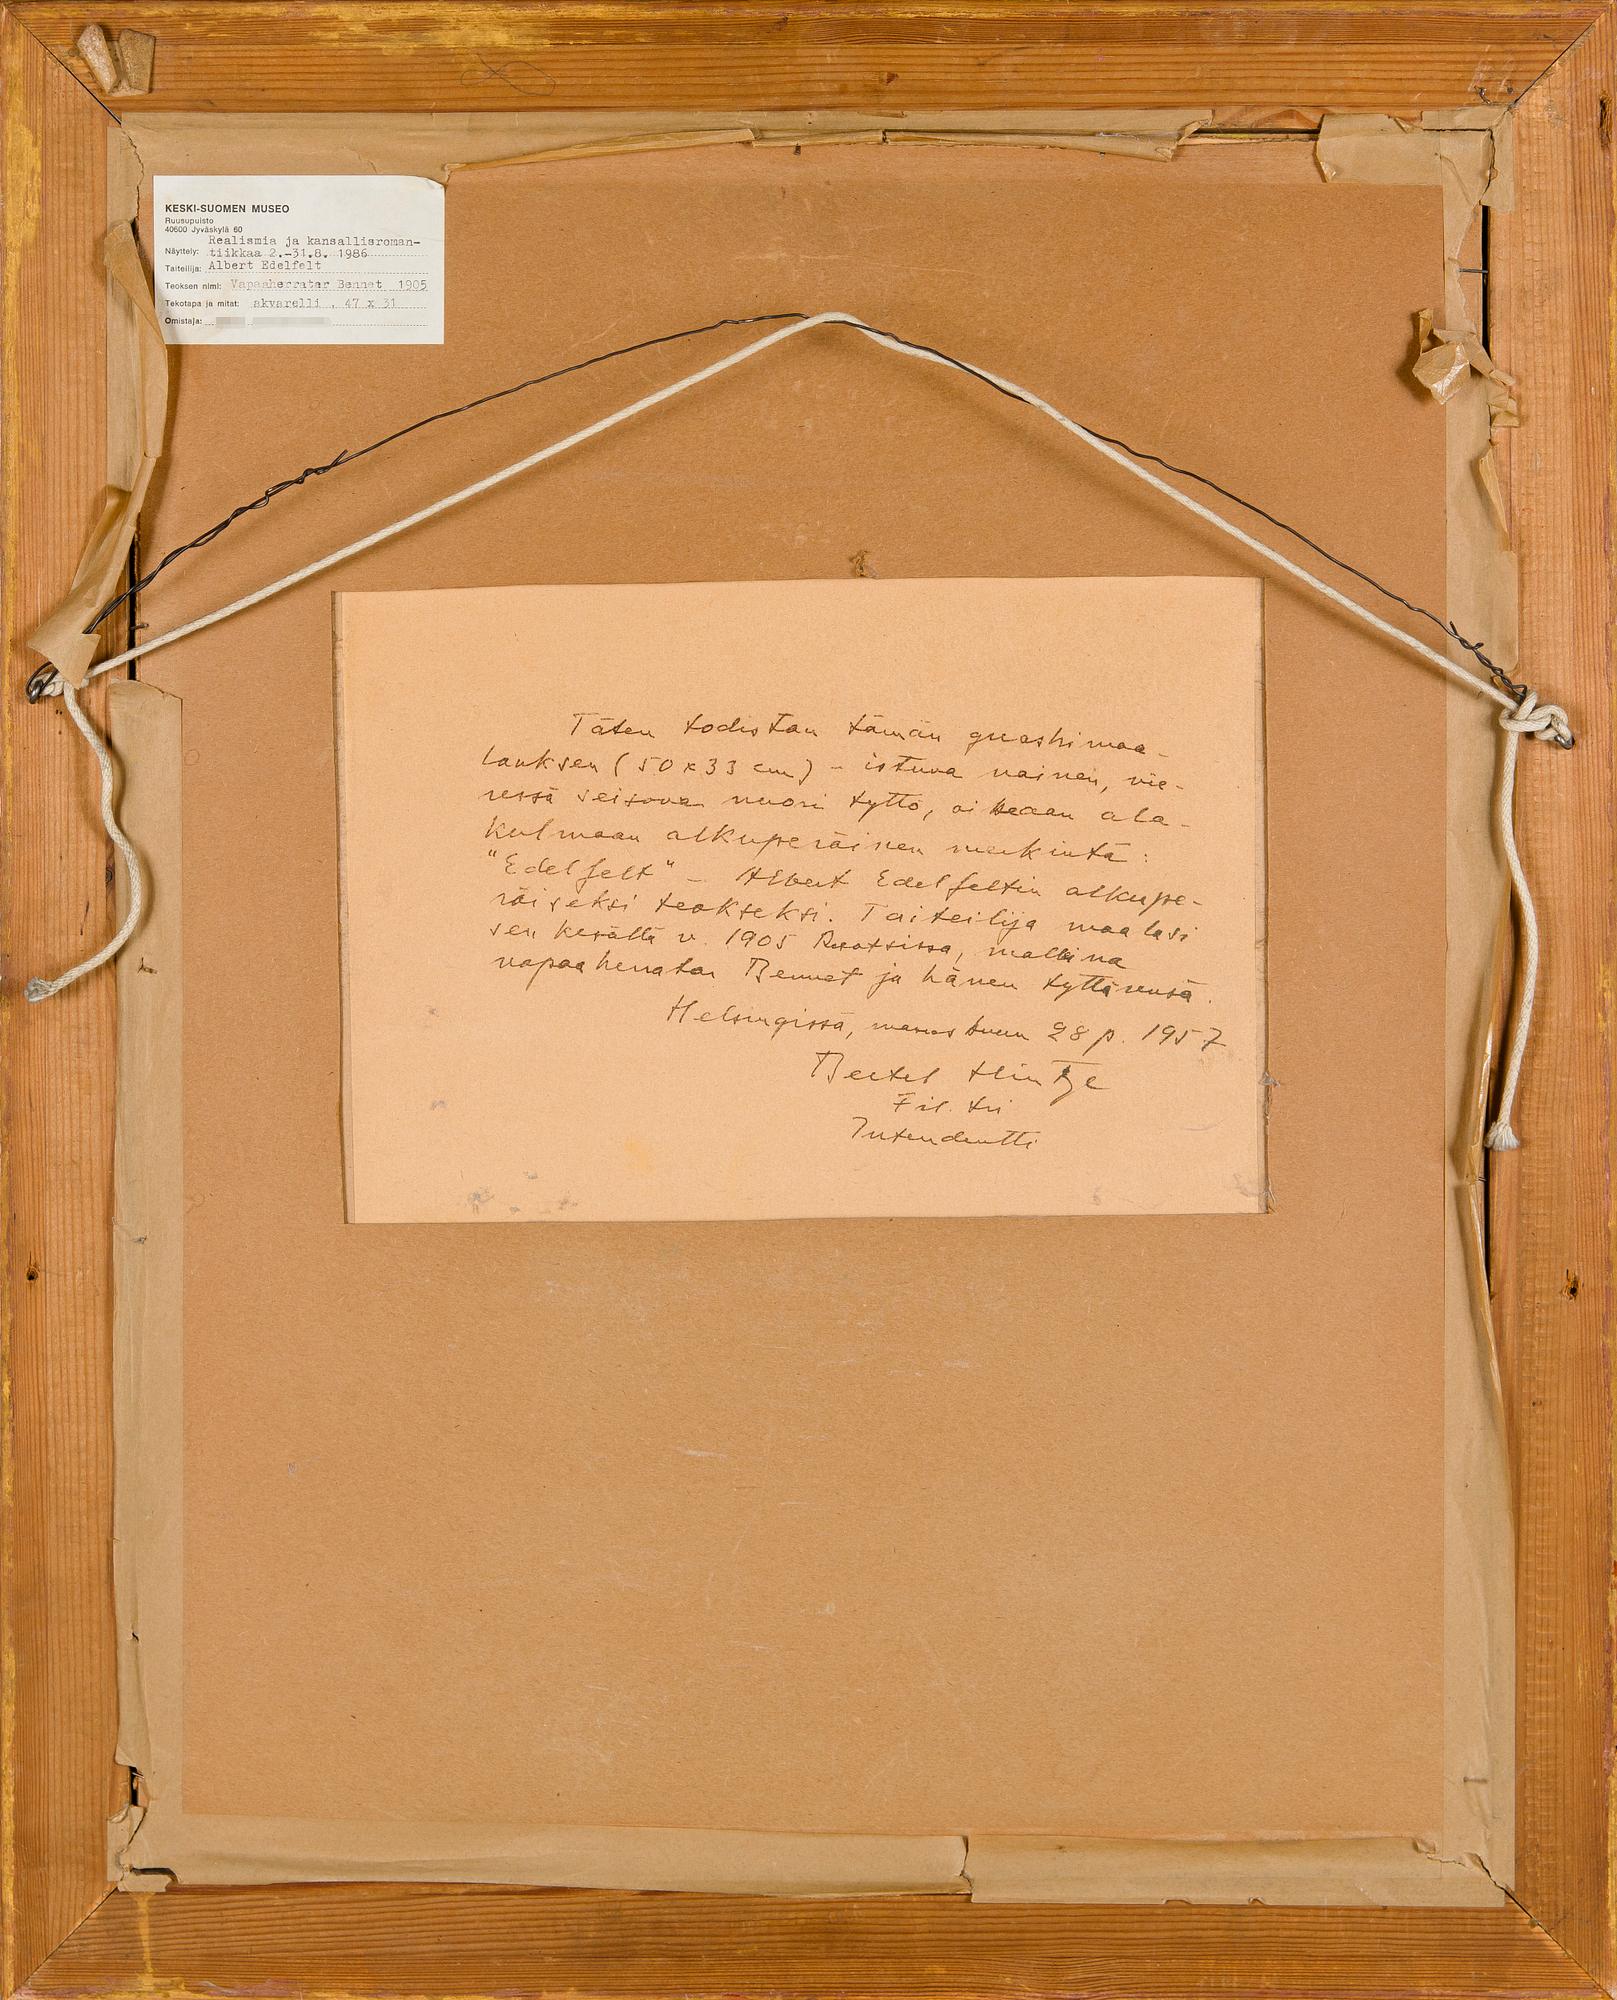 KESKI-SUOMEN MUSEO
Ruusupuisto
40600 Jyväskylä 60
Realismia ja kansallisroman-
Näyttely: tiikkaa 2.-31.8. 1986
Taiteilija: Albert Edelfelt
Teoksen nimi: Vapaaherratar Bennet 1905
Tekotapa ja mitat: akvarelli , 47 x 31
Omistaja:
Täten todistan tämän guashimaa-
lauksen (50 x 33 cm) - istuva nainen, vie-
ressä seisova nuori tyttö, oikeaan ala-
kulmaan alkuperäinen merkintä:
"Edelfelt" - Albert Edelfeltin alkupe-
räiseksi teokseksi. Taiteilija maalasi
sen kesällä v. 1905 Ruotsissa, mallina
vapaaherratar Bennet ja hänen tyttärensä.
Helsingissä, marrastuun 28 p. 1957
Bertel Hintze
Fil. tri
Intendentti